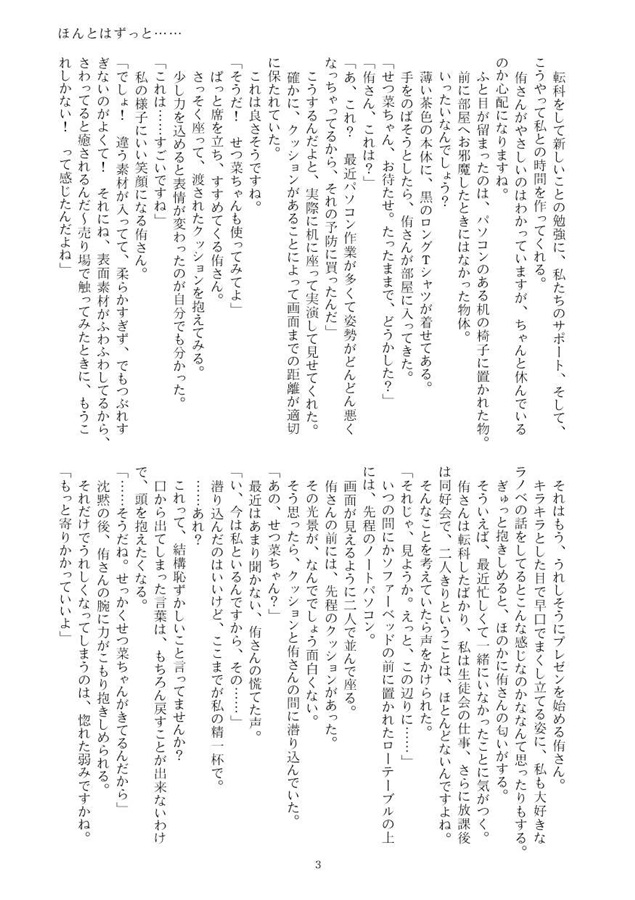 ほんとはずっと……
転科をして新しいことの勉強に、私たちのサポート、そして、
こうやって私との時間を作ってくれる。
侑さんがやさしいのはわかっていますが、ちゃんと休んでいる
のか心配になりますね。
ふと目が留まったのは、パソコンのある机の椅子に置かれた物。
前に部屋へお邪魔したときにはなかった物体。
いったいなんでしょう？
薄い茶色の本体に、黒のロングTシャツが着せてある。
手をのばそうとしたら、侑さんが部屋に入ってきた。
「せつ菜ちゃん、お待たせ。たったままで、どうかした？」
「侑さん、これは？」
「あ、これ？　最近パソコン作業が多くて姿勢がどんどん悪く
なっちゃってるから、それの予防に買ったんだ」
こうするんだよと、実際に机に座って実演して見せてくれた。
確かに、クッションがあることによって画面までの距離が適切
に保たれていた。
これは良さそうですね。
「そうだ！　せつ菜ちゃんも使ってみてよ」
ぱっと席を立ち、すすめてくる侑さん。
さっそく座って、渡されたクッションを抱えてみる。
少し力を込めると表情が変わったのが自分でも分かった。
「これは……すごいですね」
私の様子にいい笑顔になる侑さん。
「でしょ！　違う素材が入ってて、柔らかすぎず、でもつぶれす
ぎないのがよくて！　それにね、表面素材がふわふわしてるから、
さわってると癒されるんだ～売り場で触ってみたときに、もうこ
れしかない！　って感じたんだよね」
それはもう、うれしそうにプレゼンを始める侑さん。
キラキラとした目で早口でまくし立てる姿に、私も大好きな
ラノベの話をしてるとこんな感じなのかななんて思ったりもする。
ぎゅっと抱きしめると、ほのかに侑さんの匂いがする。
そういえば、最近忙しくて一緒にいなかったことに気がつく。
侑さんは転科したばかり、私は生徒会の仕事、さらに放課後
は同好会で、二人きりということは、ほとんどないんですよね。
そんなことを考えていたら声をかけられた。
「それじゃ、見ようか。えっと、この辺りに……」
いつの間にかソファーベッドの前に置かれたローテーブルの上
には、先程のノートパソコン。
画面が見えるように二人で並んで座る。
侑さんの前には、先程のクッションがあった。
その光景が、なんででしょう面白くない。
そう思ったら、クッションと侑さんの間に潜り込んでいた。
「あの、せつ菜ちゃん？」
最近はあまり聞かない、侑さんの慌てた声。
「い、今は私といるんですから、その……」
潜り込んだのはいいけど、ここまでが私の精一杯で。
……あれ？
これって、結構恥ずかしいこと言ってませんか？
口から出てしまった言葉は、もちろん戻すことが出来ないわけ
で、頭を抱えたくなる。
「……そうだね。せっかくせつ菜ちゃんがきてるんだから」
沈黙の後、侑さんの腕に力がこもり抱きしめられる。
それだけでうれしくなってしまうのは、惚れた弱みですかね。
「もっと寄りかかっていいよ」
3